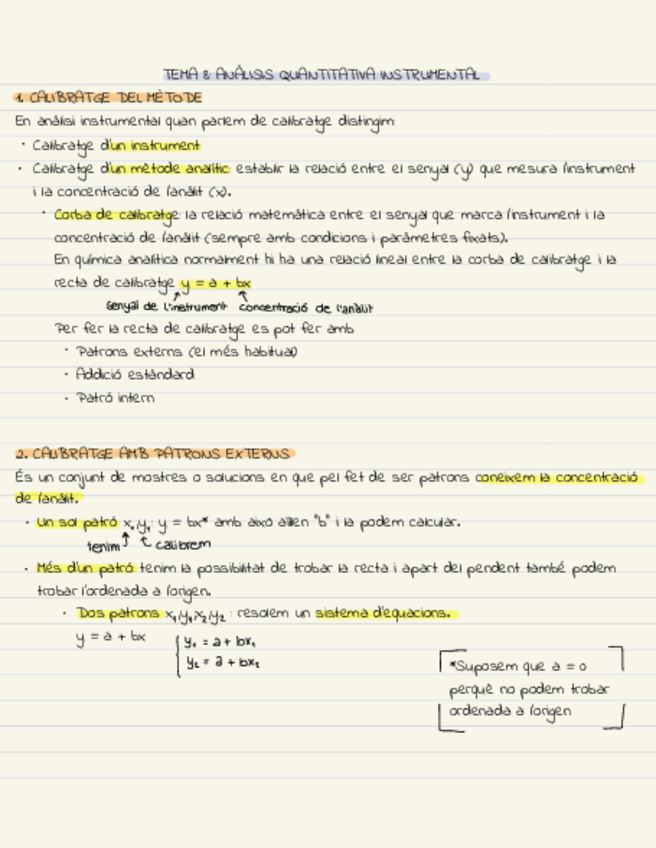 TEMA 8 ANÀLISIS QUANTITATIVA INSTRUMENTAL
1. CALIBRATGE DEL MÈTODE
En anàlisi instrumental quan parlem de calibratge distingim
· Calibratge d'un instrument
· Calibratge d'un mètode analític establir la relació entre el senyal (y) que mesura l'instrument
i la concentració de l'anàlit (x).
· Corba de calibratge la relació matemàtica entre el senyal que marca l'instrument i la
concentració de l'anàlit (sempre amb condicions i paràmetres fixats).
En química analítica normalment hi ha una relació lineal entre la corba de calibratge i la
recta de calibratge y = a + bx
senyal de l'instrument concentració de l'anàlit
Per fer la recta de calibratge es pot fer amb
· Patrons externs (el més habitual)
· Addició estàndard
· Patró intern
2. CALIBRATGE AMB PATRONS EXTERNS
És un conjunt de mostres o solucions en que pel fet de ser patrons coneixem la concentració
de l'anàlit.
· Un sol patró x₁y₁: y = bx* amb això aïllen "b" i la podem calcular.
tenim calibrem
· Més d'un patró tenim la possibilitat de trobar la recta i apart del pendent també podem
trobar l'ordenada a l'origen.
· Dos patrons x₁y₁x₂y₂ : resolem un sistema d'equacions.
y = a + bx
y₁ = a + bx₁
y₂ = a + bx₂
*Suposem que a = 0
perquè no podem trobar
ordenada a l'origen